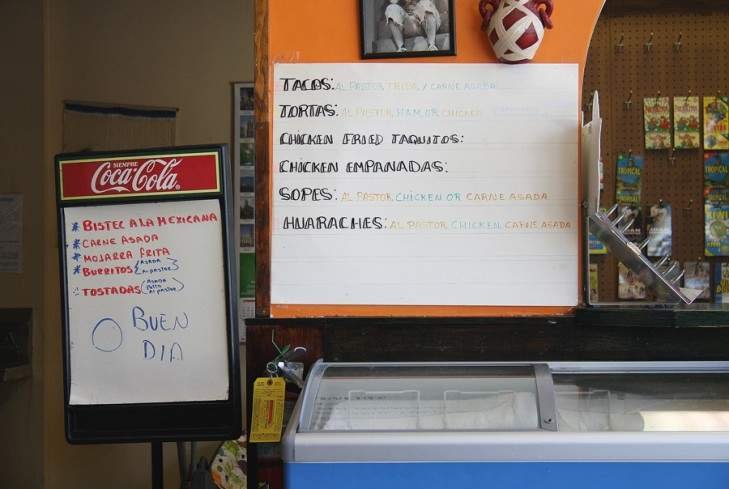 SIEMPRE
Coca-Cola
* BISTEC A LA MEXICANA
* CARNE ASADA
* MOJARRA FRITA
* BURRITOS (ASADA
AL PASTOR)
TOSTADAS (ASADA
POLLO
AL PASTOR)
BUEN
DIA
TACOS: AL PASTOR, TRIPA, Y CARNE ASADA
TORTAS: AL PASTOR, HAM, OR CHICKEN
CHICKEN FRIED TAQUITOS:
CHICKEN EMPANADAS:
SOPES: AL PASTOR, CHICKEN OR CARNE ASADA
HUARACHES: AL PASTOR, CHICKEN, CARNE ASADA
TROPICAL
TROPICAL
KIWI